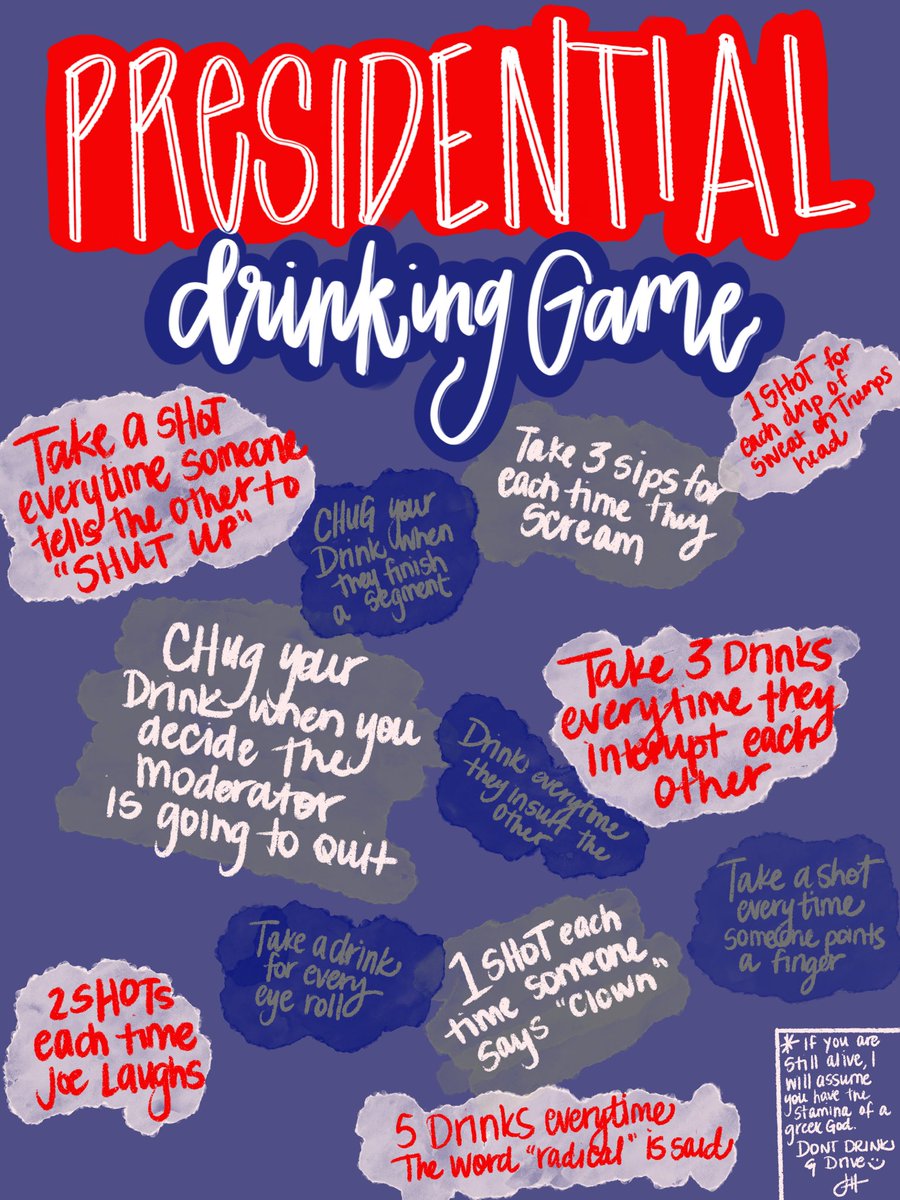 PResIDENTIAL
drinking Game
1 SHOT for
each drip of
sweat on Trumps
head
Take a SHOT
everytime someone
tells the other to
"SHUT UP"
Take 3 sips for
each time they
scream
CHUG your
Drink when
they finish
a segment
CHug your
Drink when you
decide the
moderator
is going to quit
Take 3 Drinks
everytime they
interupt each
other
Drink everytime
they insult the
other
Take a shot
everytime
someone points
a finger
Take a drink
for every
eye roll
1 SHOT each
time someone
says "clown"
2 SHOTs
each time
Joe Laughs
5 Drinks everytime
The word "radical" is said
* If you are
still alive, I
will assume
you have the
stamina of a
greek God.
DONT DRINK
& DRIVE